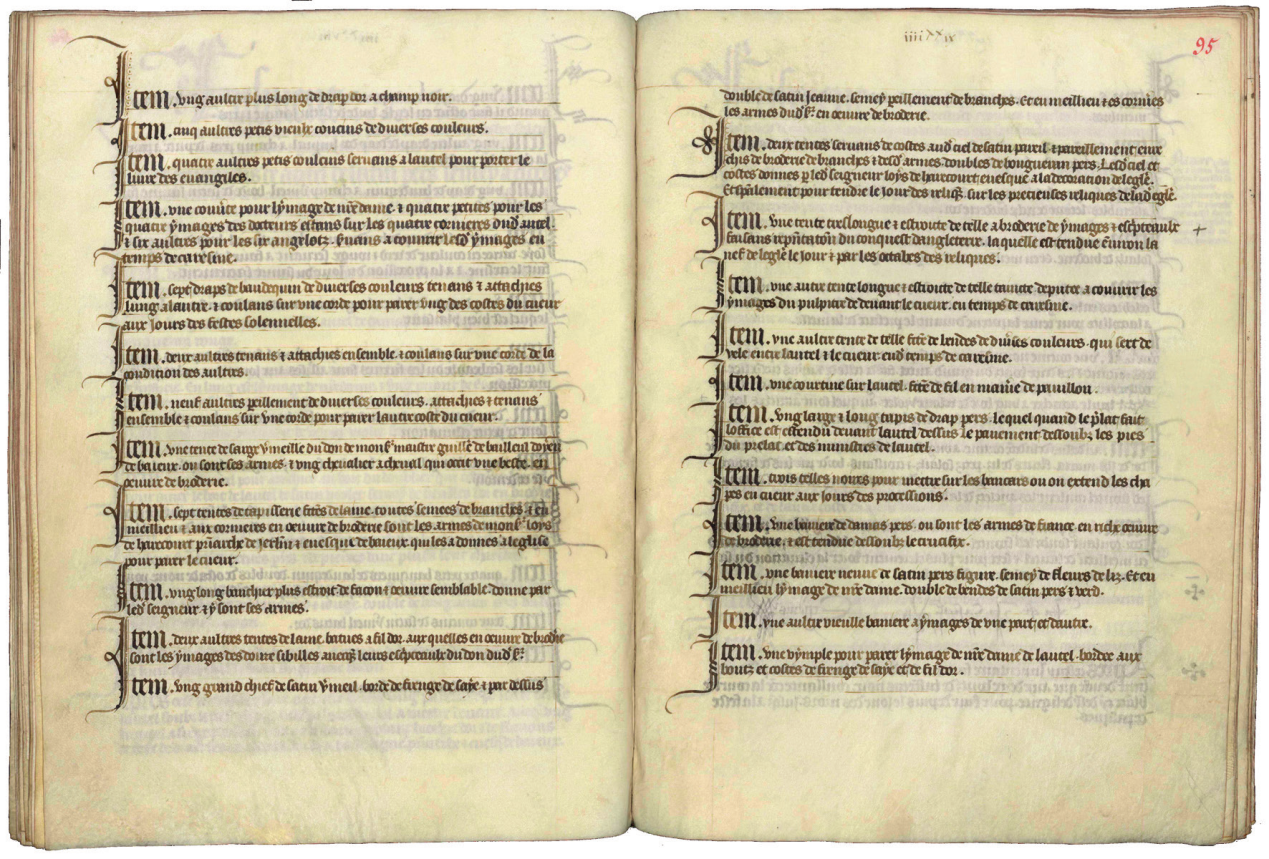 Item . vng aultre plus long de drap dor a champ noir.
Item . cinq aultres petis vieulx coucins de diuerses couleurs .
Item . quatre aultres petis couleins seruans a lautel pour porter le
liure des euangiles .
Item . vne couuˀte pour lẏmage de nr̄e dame . ⁊ quatre petites pour les
quatre ẏmages des docteurs estans sur les quatre cornieres dud autel .
⁊ six aultres pour les six angelotz . sˀuans a couurir lesd ẏmages en
temps de caresme .
Item . sept draps de baudequin de diuerses couleurs tenans ⁊ attachies
lung a lautre . ⁊ coulans sur vne corde pour parer vng des costes du cueur
aux jours des festes solennelles .
Item . deux aultres tenans ⁊ attachies ensemble . ⁊ coulans sur vne corde de la
condition des aultres .
Item . neuf aultres pˀeillement de diuerses couleurs . attachies ⁊ tenans
ensemble ⁊ coulans sur vne corde pour parer lautre coste du cueur .
Item . vne tente de sarge vˀmeille du don de monsˀ maistre guillē de bailleul doyen
de baieux . ou sont ses armes . ⁊ vng cheualier a cheual qui occit vne beste . en
oeuure de broderie .
Item . sept tentes de tapisserie fc̄es de laine . toutes semees de branches . ⁊ en
meillieu ⁊ aux cornieres en oeuure de broderie sont les armes de monsˀ loys
de harecourt pr̄iarche de jerl̄m ⁊ euesque de baieux . qui les a donnes a leglise
pour parer le cueur .
Item . vng long banchier plus estroit de facon ⁊ œuure semblable . donne par
led seigneur ⁊ ẏ sont ses armes .
Item . deux aultres tentes de laine . batues a fil dor . aux quelles en oeuure de brodˀie
sont les ẏmages des douze sibilles auecq̄s leurs escpteaulx du don dud sˀ .
Item . vng grand chief de satin vˀmeil . borde de frenge de saẏe ⁊ par dessus
iiiiˣˣ xix
95
double de satin jeaune . semeẏ pˀeillement de branches . Et en meillieu ⁊ es cornieˀs
les armes dud sˀ en oeuure de broderie .
Item . deux tentes seruans de costes aud ciel de satin pareil ⁊ pareillement enri
chis de broderie de branches ⁊ desd armes . doubles de bougueran pers . Lesd ciel et
costes donnes pˀ led seigneur loẏs de harecourt euesque a la decoration de legl̄e .
Et sp̄alement pour tendre le jour des reliqˀ . sur les precieuses reliques de lad egl̄e .
Item . vne tente tres longue ⁊ estroicte de telle a broderie de ẏmages ⁊ escpteaulx +
faisans repn̄tatōn du conquest dangleterre . la quelle est tendue ēuiron la
nef de legl̄e le Jour ⁊ par les octabes des reliques .
Item . vne autre tente longue ⁊ estroicte de telle taincte deputee a couurir les
ẏmages du pulpitre de deuant le cueur . en temps de caresme .
Item . vne aultre tente de telle fc̄e de bendes de diuˀses couleurs . qui sert de
vele entre lautel ⁊ le cueur . end temps de caresme .
Item . vne courtine sur lautel . fc̄e de fil en manieˀ de pauillon .
Item . vng large ⁊ long tapis de drap pers . le quel quand le pˀlat fait
loffice est estendu deuant lautel dessus le pauement dessoubz les pies
du prelat et des ministres de lautel .
Item . trois telles noires pour mectre sur les bancars ou on extend les cha
pes en cueur aux jours des processions .
Item . vne baniere de damas pers . ou sont les armes de france . en riche œuure
de broderie . ⁊ est tendue dessoubz le crucifix .
Item . vne baniere neuue de satin pers figure . semeẏ de fleurs de liz . Et en
meillieu lẏmage de nr̄e dame . double de bendes de satin pers ⁊ verd .
Item . vne aultre vieille baniere a ẏmages de vne part et dautre .
Item . vne vẏmple pour parer lẏmage de nr̄e dame de lautel . bordee aux
boutz et costes de frenge de saẏe et de fil dor .